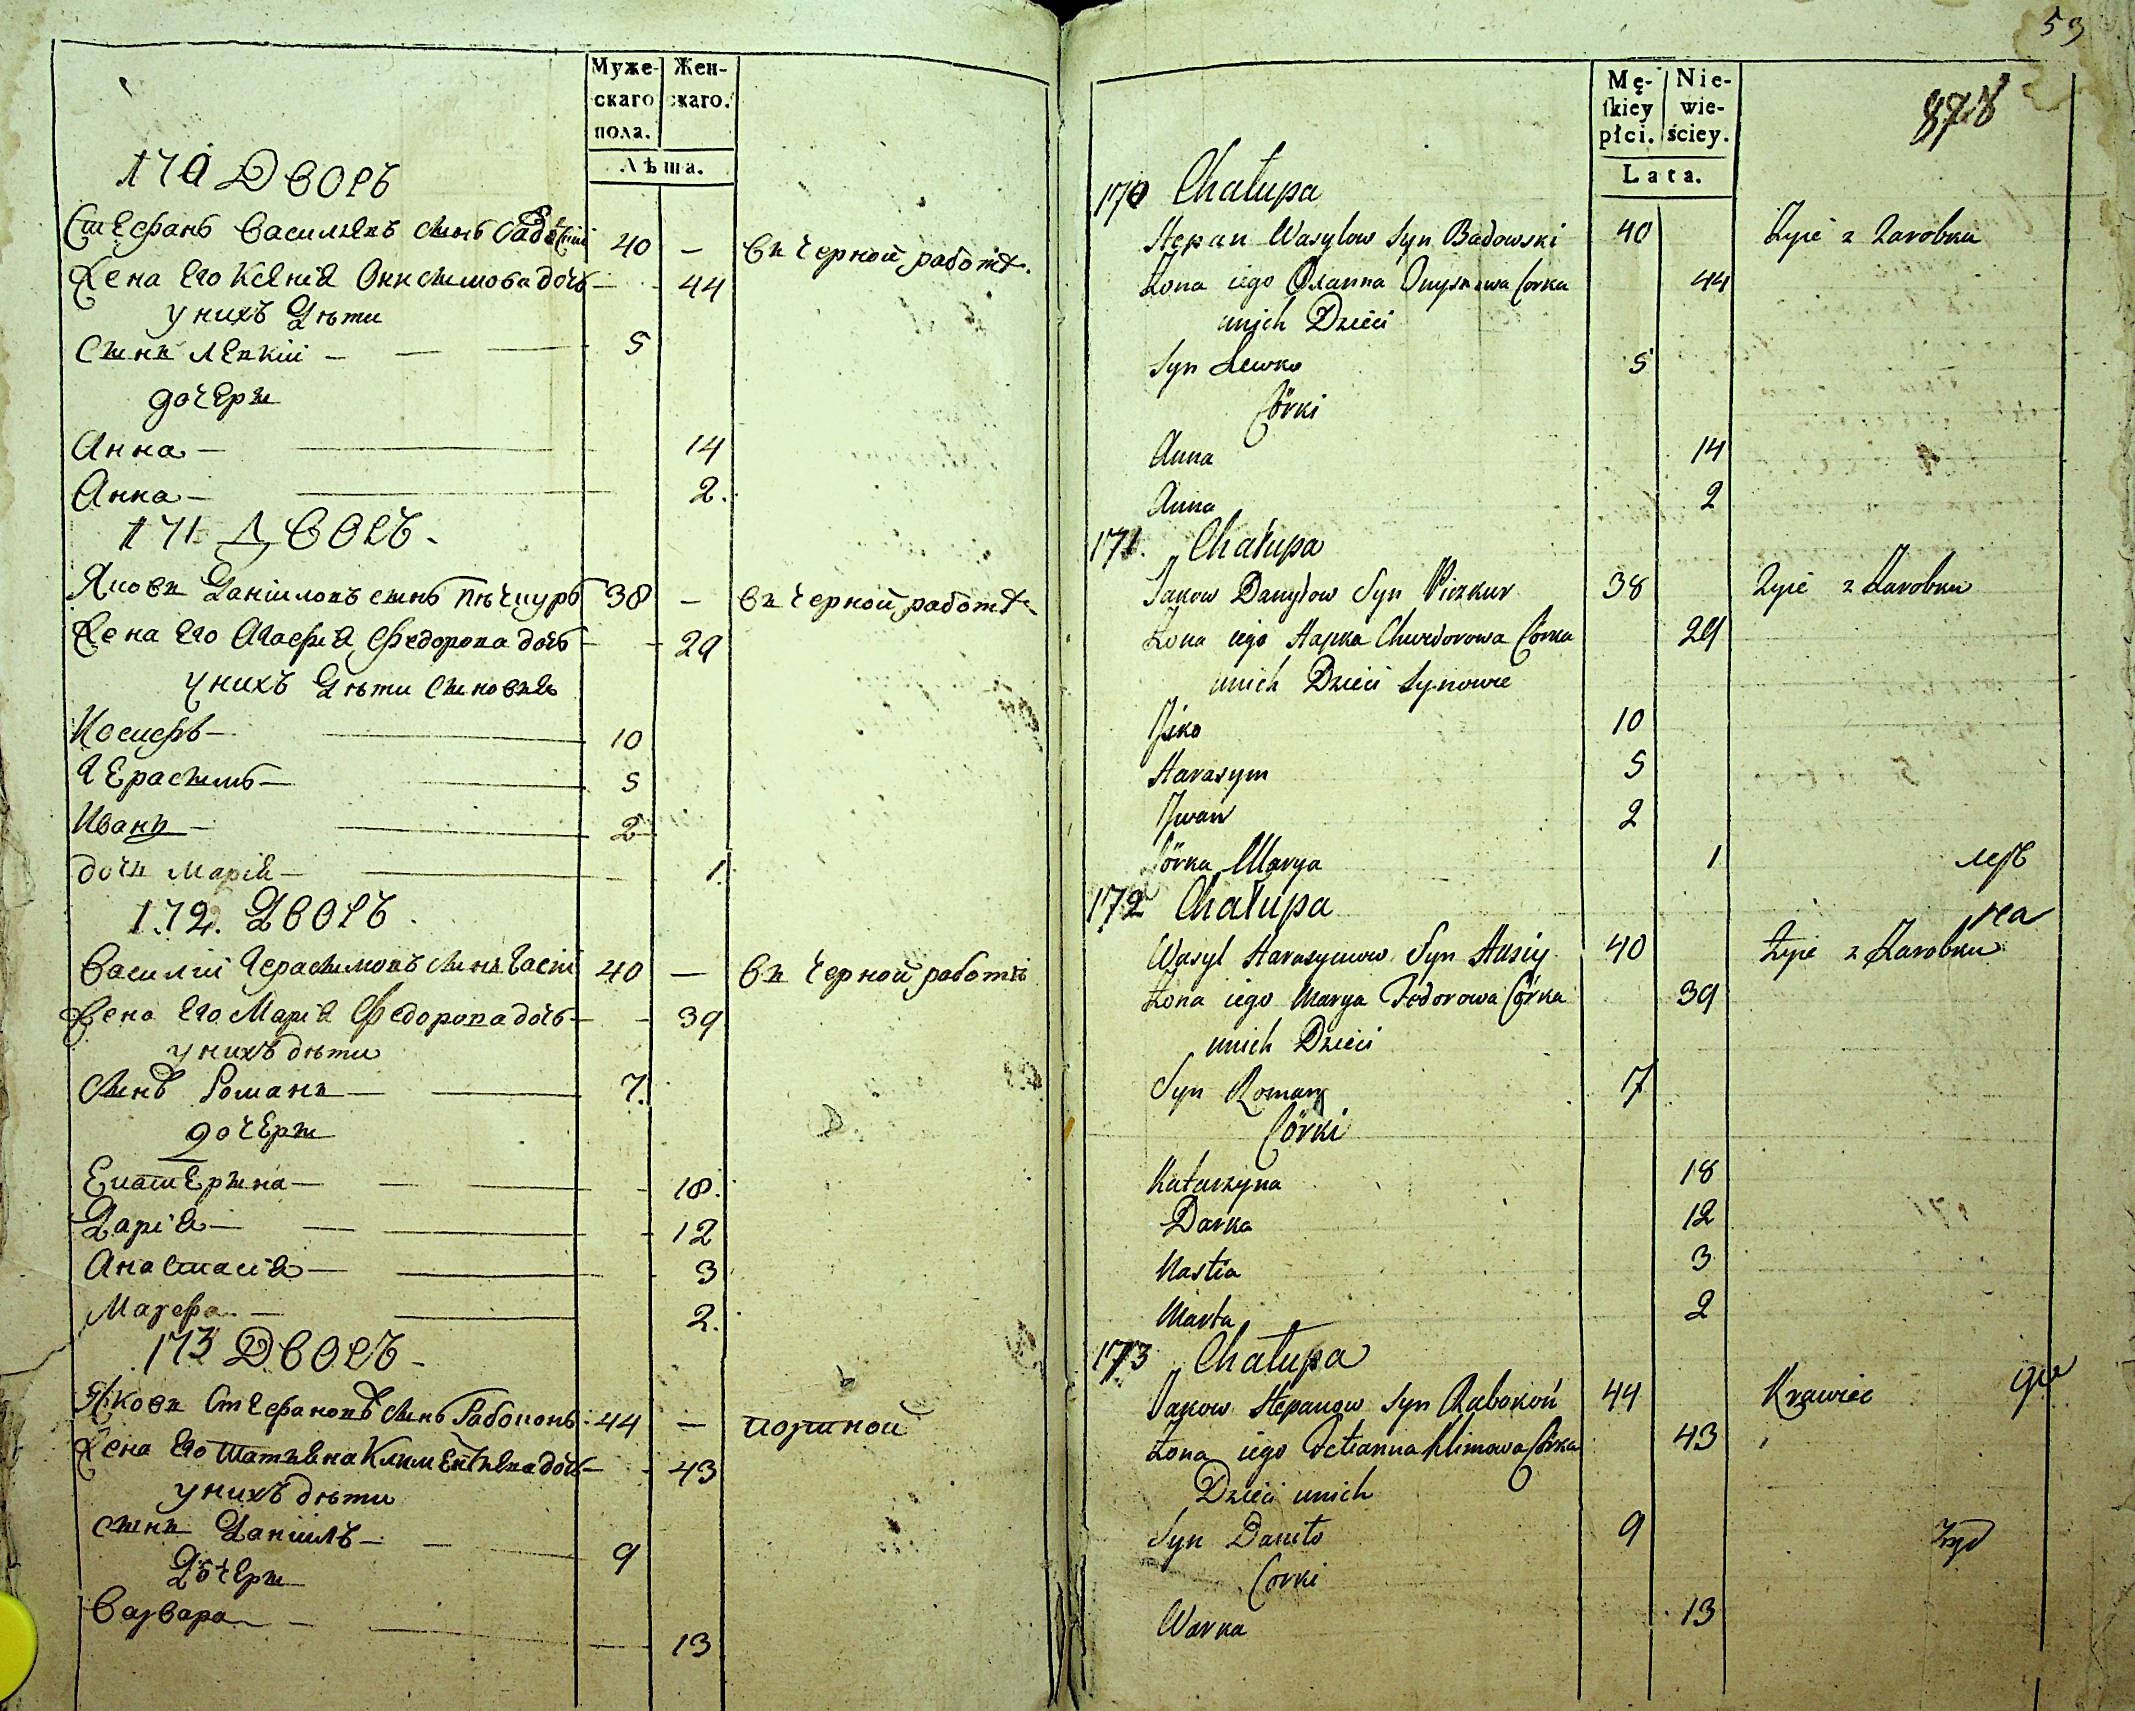 Муже-
скаго
пола.
Жен-
скаго.
Лѣта.
170 Дворъ
Стефанъ Васильевъ сынъ 40 — въ черной работѣ.
Жена Его Ксенія Онисимова дочь — 44
у нихъ Дѣти
Сынъ Левкій — 5
дочери
Анна — 14
Анна — 2.
171 Дворъ.
Яковъ Даніиловъ сынъ Пѣчкуръ 38 — въ черной работѣ
Жена Его Агафія Федорова дочь — 29
у нихъ Дѣти сыновья
Іосифъ — 10
Герасимъ — 5
Иванъ — 2
дочь Марія — 1.
172. Дворъ.
Василій Герасимовъ сынъ Гасій 40 — въ черной работѣ
Жена Его Марія Федорова дочь — 39
у нихъ дѣти
Сынъ Романъ — 7.
дочери
Екатерина — 18.
Дарія — 12
Анастасія — 3
Марфа — 2.
173 Дворъ —
Яковъ Стефановъ сынъ Рабоконь 44 — портной
Жена Его Татіяна Климентіева дочь — 43
у нихъ дѣти
сынъ Даніилъ — 9
Дочери
Варвара — 13
53
Mę-
ſkiey
płci.
Nie-
wie-
ściey.
Lata.
878
170 Chałupa
Stepan Wasylow Syn Badowski 40 Żyie z Zarobku
Żona iego Oxanna Onyskowa Córka 44
unich Dzieci
Syn Lewko 5
Córki
Anna 14
Anna 2
171. Chałupa
Jakow Danyłow Syn Piczkur 38 Żyie z Zarobku
Żona iego Hapka Chwedorowa Córka 29
unich Dzieci Synowie
Józko 10
Harasym 5
Jwan 2
Córka Marya 1
172 Chałupa
Wasyl Harasymow Syn Hasiy 40 Żyie z Zarobku
Żona iego Marya Fedorowa Córka 39
unich Dzieci
Syn Roman 7
Córki
Katarzyna 18
Darka 12
Nastia 3
Marta 2
173 Chałupa
Jakow Stepanow Syn Rabokoń 44 Krawiec
Żona iego Tetianna Klimowa Córka 43
Dzieci unich
Syn Daniło 9
Corki
Warka 13